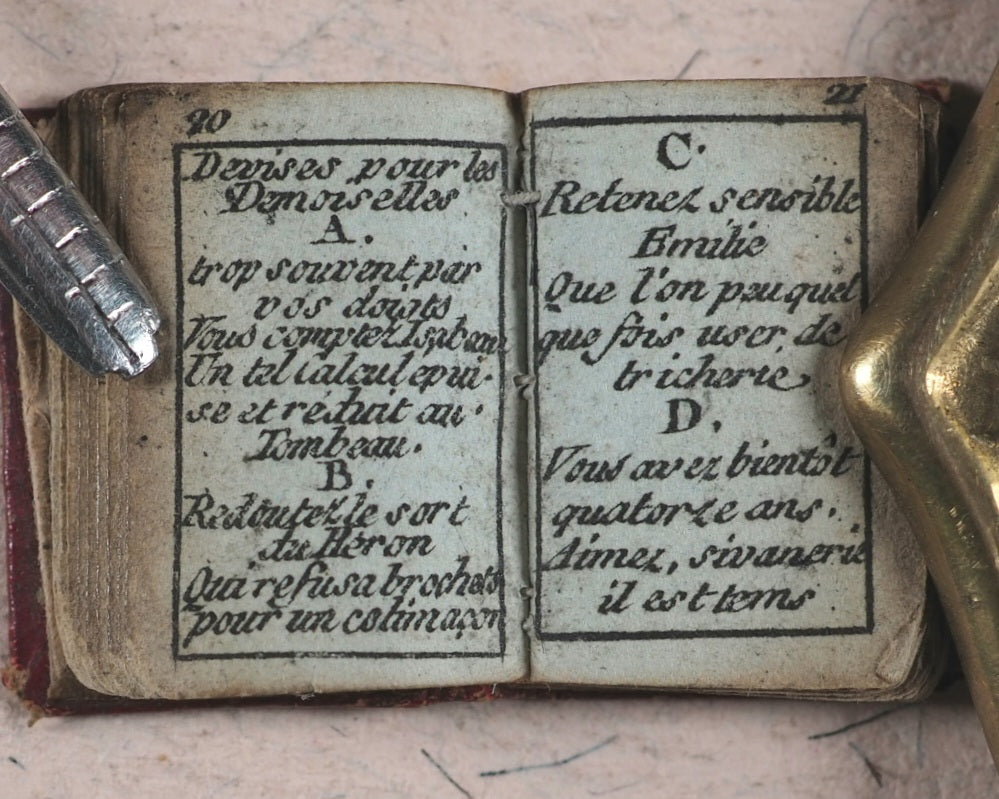 20
Devises pour les
Demoiselles
A.
trop souvent par
vos doigts
Vous comptez Isabeau
Un tel Calcul epui-
se et réduit au
Tombeau.
B.
Redoutez le sort
du Héron
Qui refusa brochets
pour un colimaçon
21
C.
Retenez sensible
Emilie
Que l'on peu quel
que fois user de
tricherie
D.
Vous avez bientôt
quatorze ans.
Aimez, sivanerie
il est tems